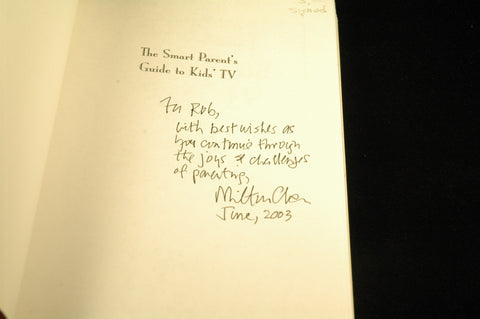 Signed
The Smart Parent's
Guide to Kids' TV
For Rob,
with best wishes as
you continue through
the joys & challenges
of parenting,
Milton Chen
June, 2003